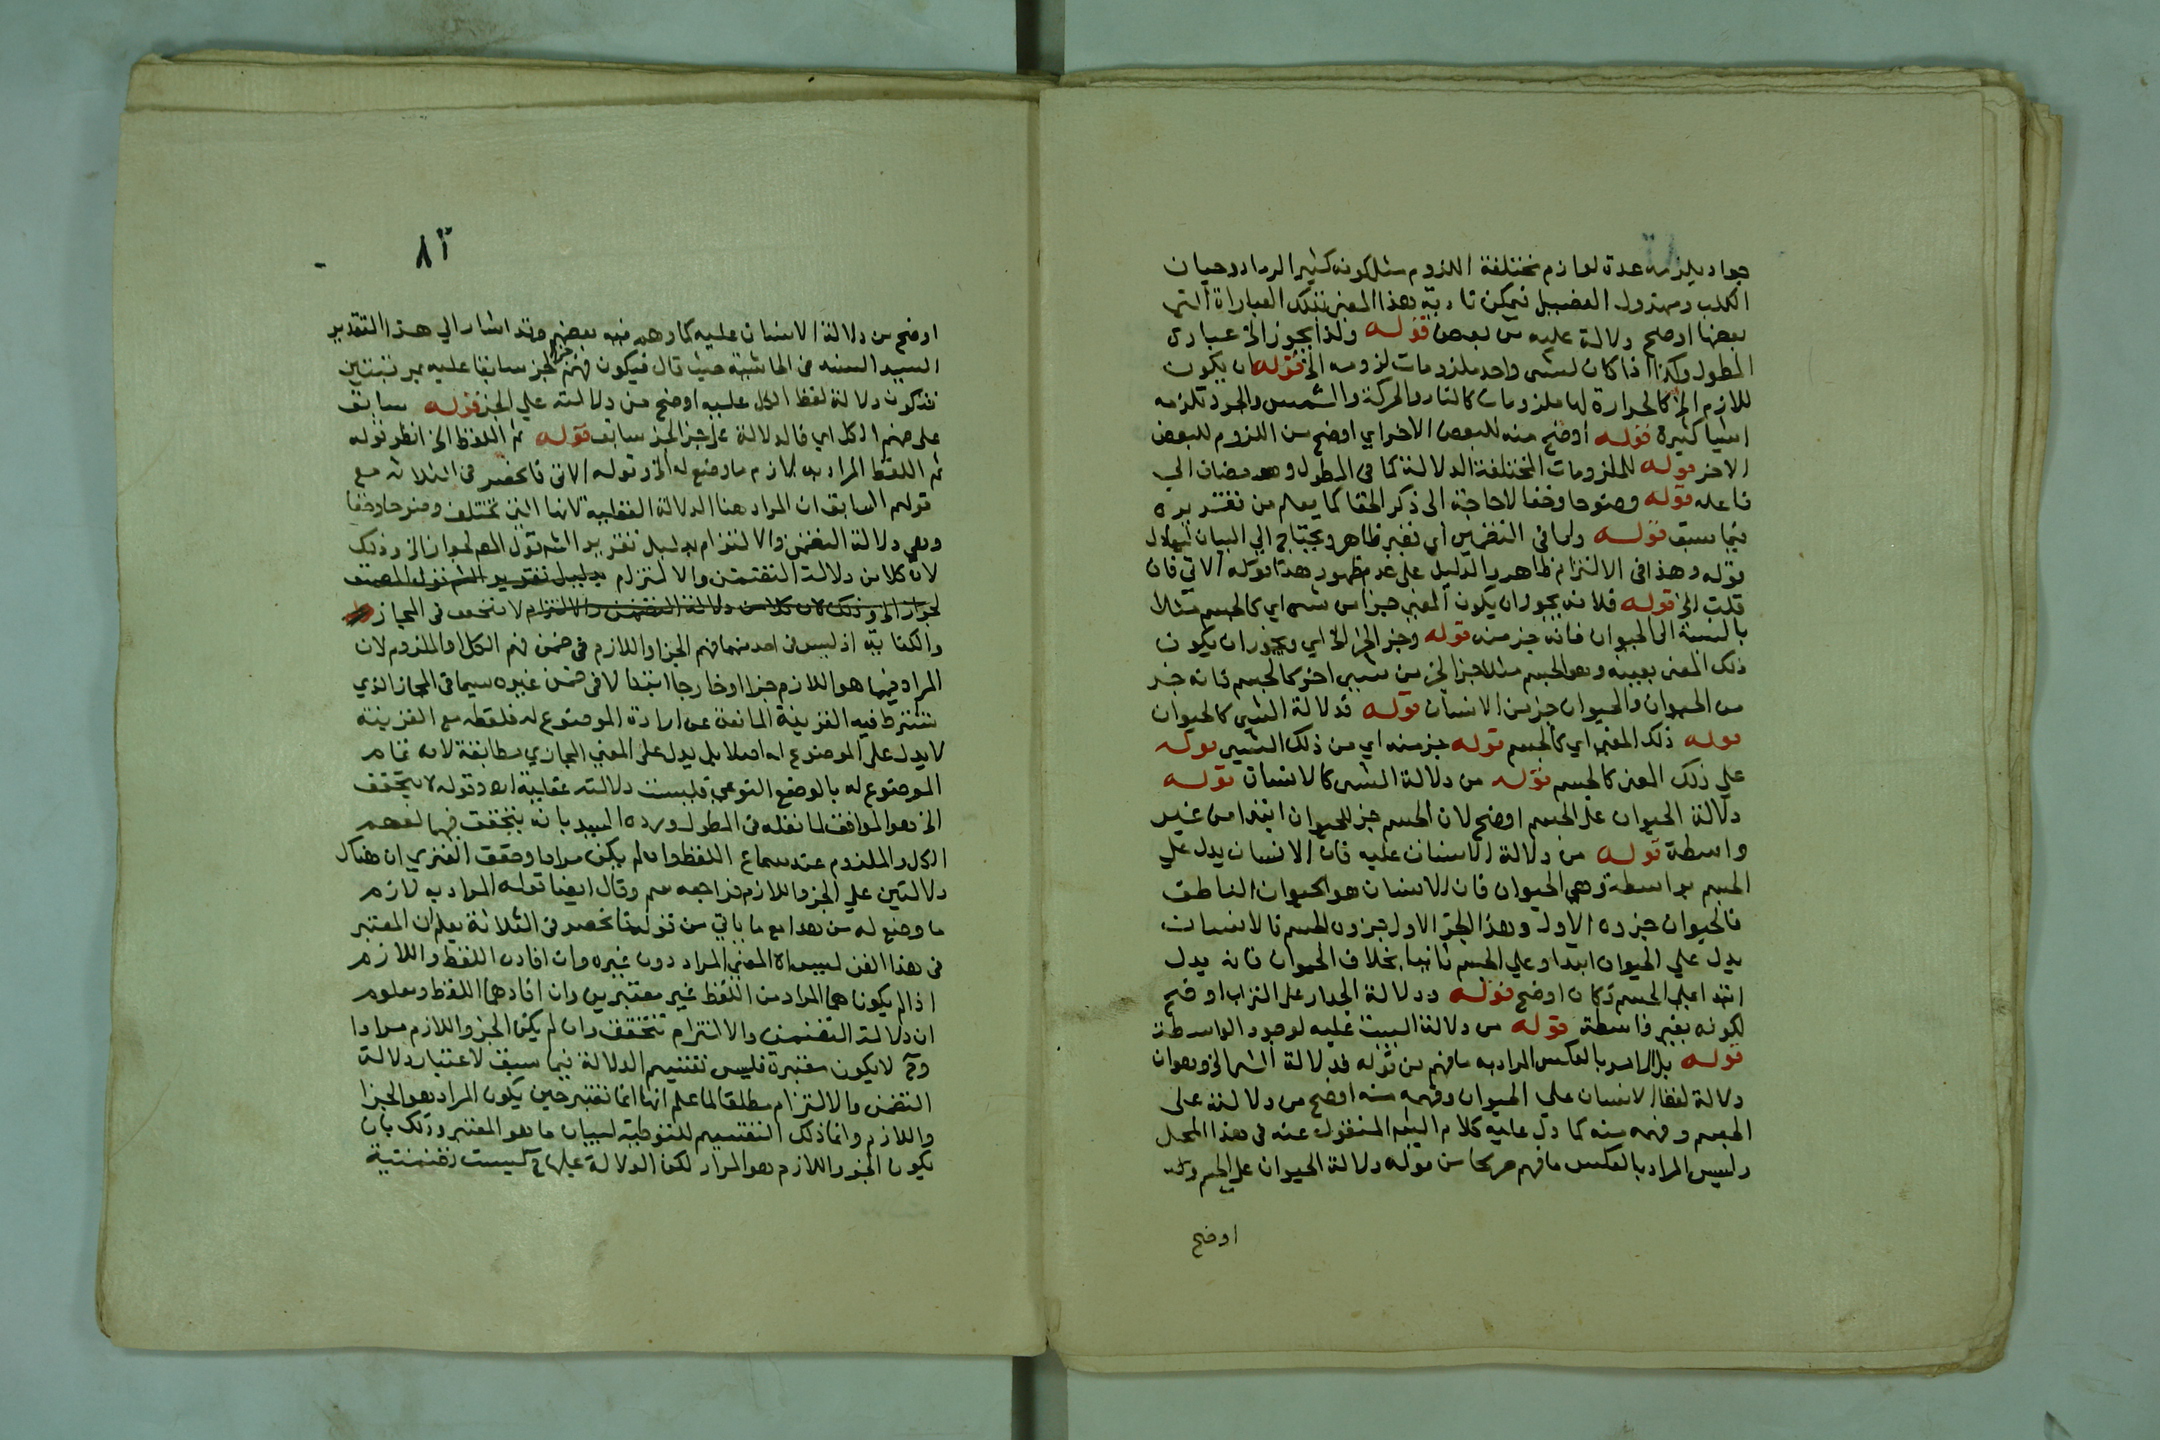 جواد يلزمه عدة لوازم مختلفة اللزوم مثل كونه كثير الرماد وجبان
الكلب ومهزول الفصيل فيمكن تاديته هذا المعنى بتلك العبارات التي
بعضها اوضح دلالة عليه من بعض قوله ولذا يجوز الخ عبارى
المطول وكذا اذا كان لشي واحد ملزومات لزومه الخ قوله ان يكون
للازم الخ كالحرارة لها ملزومات كالنار والحركة والشمس والجود تلزمه
اشيا كثيرة قوله اوضح منه للبعض الاخر اي اوضح من اللزوم للبعض
الاخر قوله للملزومات المختلفة الدلالة كما في المطول وهو مضاف الي
فاعله قوله وضوحا وخفا لا حاجة الى ذكر الخفا كما يعلم من تقريره
فيما سبق قوله واما في التضمن اي فغير ظاهر ويحتاج الي البيان
قوله وهذا في الالتزام ظاهر والدليل على عدم ظهور هذا قوله الاتي فان
قلت الخ قوله فلانه يجوز ان يكون المعنى جزا من شي اي كالجسم مثلا
بالنسبة الى الحيوان فانه جز منه قوله وجز الجز الخ اي ويجوز ان يكون
ذلك المعنى بعينه وهو الجسم مثلا جز الجز من شي اخر كالجسم فانه جز
من الحيوان والحيوان جز من الانسان قوله فدلالة الشي كالحيوان
قوله ذلك المعنى اي كالجسم قوله جز منه اي من ذلك الشي قوله
علي ذلك المعنى كالجسم قوله من دلالة الشي كالانسان قوله
دلالة الحيوان على الجسم اوضح لان الجسم جز للحيوان ابتدا من غير
واسطة قوله من دلالة الانسان عليه فان الانسان يدل علي
الجسم بواسطة وهي الحيوان فان الانسان هو الحيوان الناطق
فالحيوان جزوه الاول وهذا الجز الاول جزوه الجسم فالانسان
يدل علي الحيوان ابتدا وعلي الجسم ثانيا بخلاف الحيوان فانه يدل
ابتدا على الجسم فكان اوضح قوله ودلالة الجدار على التراب اوضح
لكونه بغير واسطة قوله من دلالة البيت عليه لوجود الواسطة
قوله بل الامر بالعكس المراد به ما فهم من قوله فدلالة الشي الخ وهوان
دلالة لفظ الانسان علي الحيوان وفهمه منه اوضح من دلالته على
الجسم وفهمه منه كما دل عليه كلام المنقول عنه في هذا المحل
وليس المراد بالعكس ما فهم صريحا من قوله دلالة الحيوان على الجسم
اوضح
٨٣
اوضح من دلالة الانسان عليه كما وهم فيه بعضهم وقد اشار الي هذا التقدير
السيد السند في الحاشية حيث قال فيكون فهم جز الجز سابقا عليه بمرتبتين
فتكون دلالة لفظ الكل عليه اوضح من دلالته علي الجز قوله سابق
على فهم الكل اي فالدلالة على جز الجز سابق قوله ثم اللفظ الخ انظر قوله
ثم اللفظ المراد به لازم ما وضع له الخ وقوله الاتي فانحصر في الثلاثة مع
قولهم السابق ان المراد هنا الدلالة العقلية لانها التي تختلف وضوحا وخفا
وهي دلالة التضمن والالتزام بدليل تقرير الش قول المص لجواز الخ وذلك
لان كلا من دلالة التضمن والالتزام بدليل تقرير الش قول المصنف
لجواز الخ وذلك لان كلا من دلالة التضمن والالتزام لا تتحقق في المجاز
والكناية اذ ليس في احد منهما فهم الجز او اللازم في ضمن فهم الكل او الملزوم لان
المراد فيهما هو اللازم جزا او خارجا ابتدا لا في ضمن غيره سيما في المجاز الذي
تشترط فيه القرينة المانعة عن ارادة الموضوع له فلفظه مع القرينة
لا يدل على الموضوع له اصلا بل يدل على المعنى المجازي مطابقة لانه تمام
الموضوع له بالوضع النوعي فليست دلالته عقلية اه وقوله لا يتحقق
الخ هو الموافق لما نقله في المطول ورده السيد بانه يتحقق فهما لفهم
الكل والملزوم عند سماع اللفظ وان لم يكن مرادا وحقق الفنري ان هناك
دلالتين علي الجز واللازم فراجعه سم وقال ايضا قوله المراد به لازم
ما وضع له من هذا مع ما ياتي من قوله فانحصر في الثلاثة يعلم ان المعتبر
في هذا الفن ليس الا المعنى المراد دون غيره وان افاده اللفظ واللازم
اذا لم يكونا هما المراد من اللفظ غير معتبرين وان افادهما اللفظ ومعلوم
ان دلالة التضمن والالتزام تتحقق وان لم يكن الجز واللازم مرادا
وح لا يكون معتبرة فليس تقسيم الدلالة فيما سبق لاعتبار دلالة
التضمن والالتزام مطلقا لما علم انها انما تعتبر حين يكون المراد هو الجزا
واللازم وانما ذلك التقسيم للتوطية لبيان ما هو المعتبر وذلك بان
يكون الجز واللازم هو المراد لكن الدلالة عليها ح ليست تضمنية